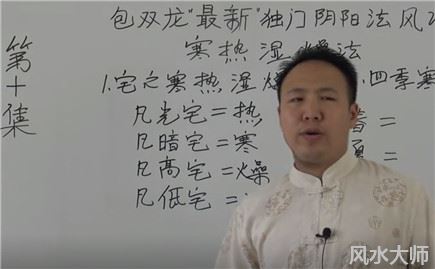 第十集
包双龙"最新"独门阴阳法风
寒热湿燥法
1.宅之寒热湿 四季寒
凡光宅=热
凡暗宅=寒
凡高宅=燥
凡低宅=
风水大师